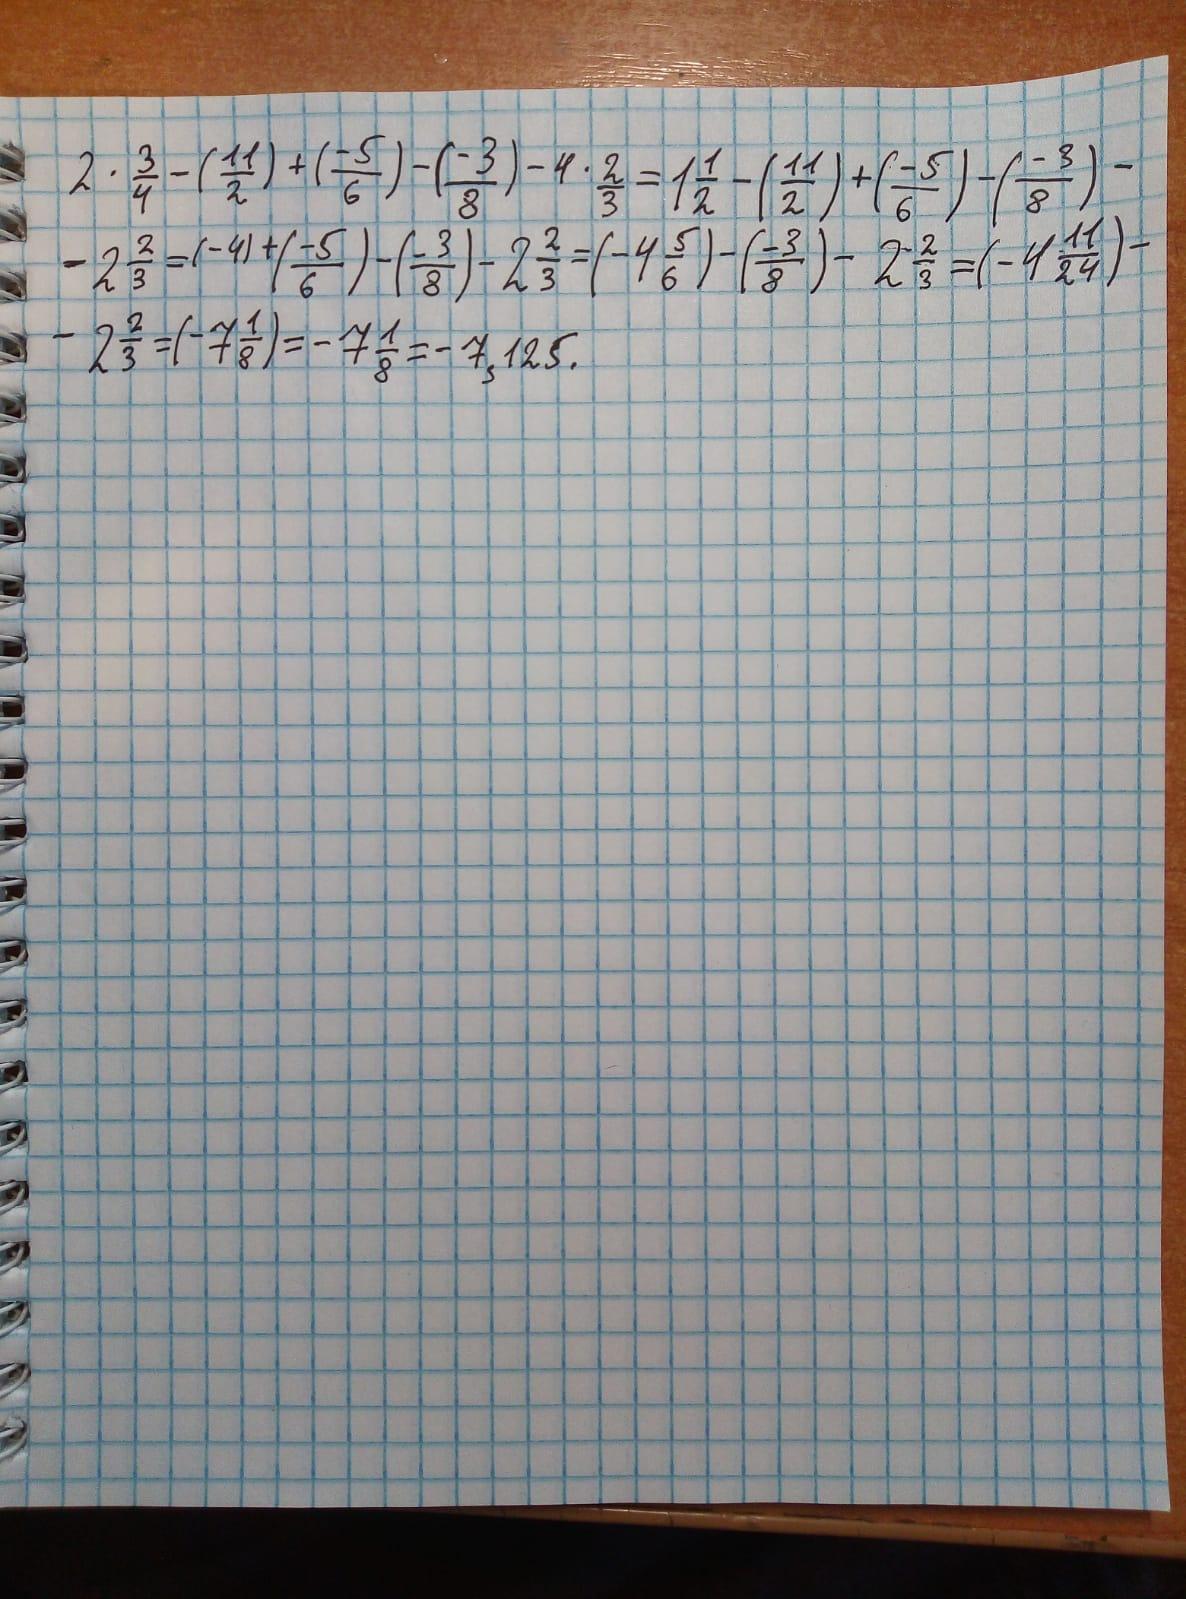 2 · 3/4 - (11/2) + (-5/6) - (-3/8) - 4 · 2/3 = 1 1/2 - (11/2) + (-5/6) - (-3/8) -
- 2 2/3 = (-4) + (-5/6) - (-3/8) - 2 2/3 = (-4 5/6) - (-3/8) - 2 2/3 = (-4 11/24) -
- 2 2/3 = (-7 1/8) = -7 1/8 = -7,125.